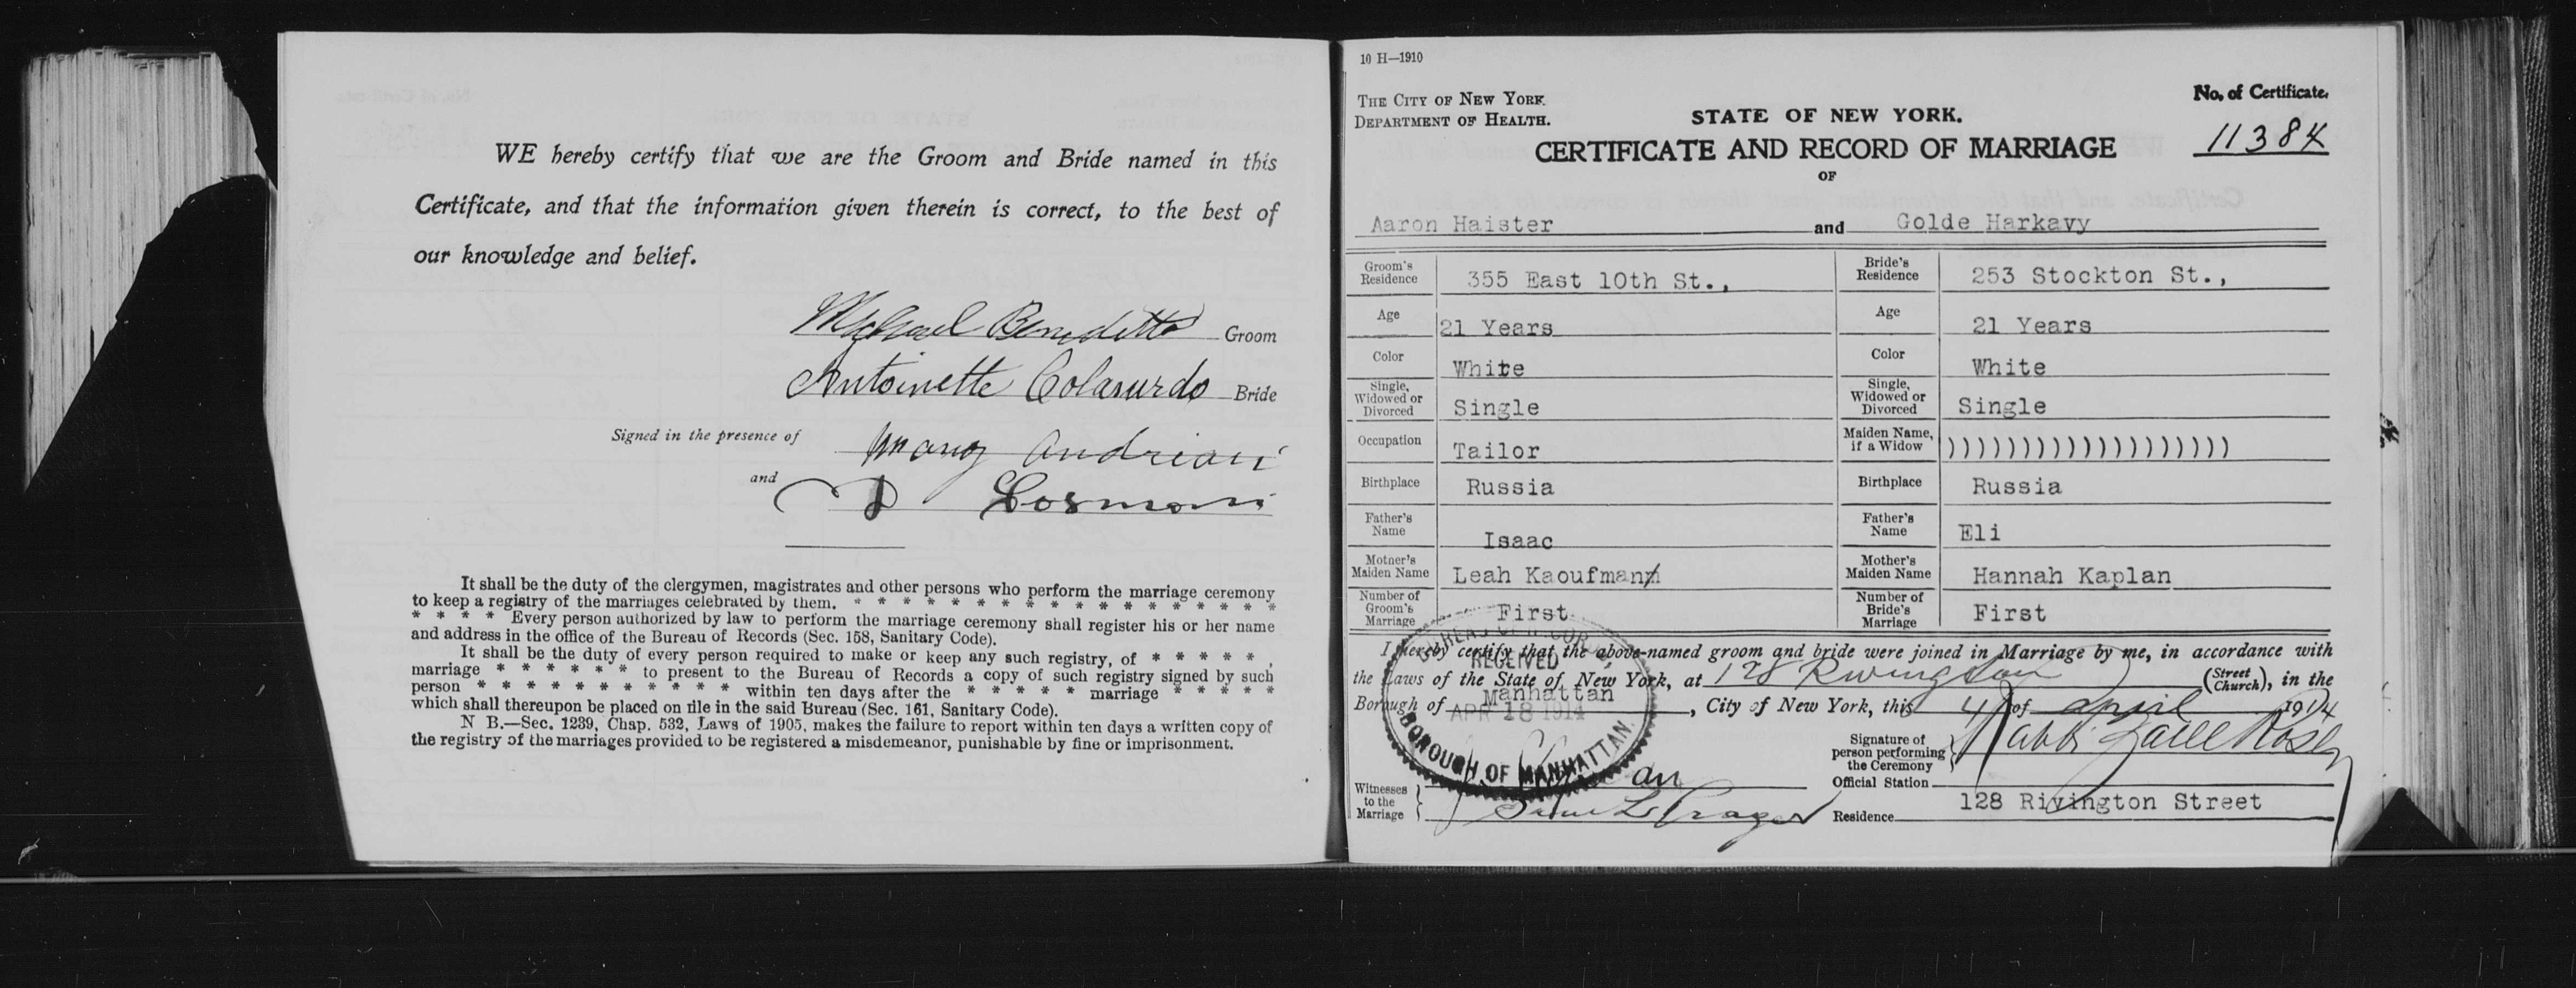 WE hereby certify that we are the Groom and Bride named in this
Certificate, and that the information given therein is correct, to the best of
our knowledge and belief.
Michael Benedetto Groom
Antoinette Colasurdo Bride
Signed in the presence of Andriani
and
It shall be the duty of the clergymen, magistrates and other persons who perform the marriage ceremony
to keep a registry of the marriages celebrated by them. * * * * * * * * * * * * * * * * * *
* * * * Every person authorized by law to perform the marriage ceremony shall register his or her name
and address in the office of the Bureau of Records (Sec. 158, Sanitary Code).
It shall be the duty of every person required to make or keep any such registry, of * * * * * ,
marriage * * * * * * to present to the Bureau of Records a copy of such registry signed by such
person * * * * * * * * * * * within ten days after the * * * * * marriage * * * * *
which shall thereupon be placed on file in the said Bureau (Sec. 161, Sanitary Code).
N B.—Sec. 1239, Chap. 532, Laws of 1905, makes the failure to report within ten days a written copy of
the registry of the marriages provided to be registered a misdemeanor, punishable by fine or imprisonment.
10 H—1910
THE CITY OF NEW YORK.
DEPARTMENT OF HEALTH.
STATE OF NEW YORK.
CERTIFICATE AND RECORD OF MARRIAGE
OF
No. of Certificate.
11384
Aaron Haister and Golde Harkavy
Groom's Residence 355 East 10th St., Bride's Residence 253 Stockton St.,
Age 21 Years Age 21 Years
Color White Color White
Single, Widowed or Divorced Single Single, Widowed or Divorced Single
Occupation Tailor Maiden Name, if a Widow ))))))))))))))))))))
Birthplace Russia Birthplace Russia
Father's Name Isaac Father's Name Eli
Mother's Maiden Name Leah Kaoufman Mother's Maiden Name Hannah Kaplan
Number of Groom's Marriage First Number of Bride's Marriage First
I hereby certify that the above-named groom and bride were joined in Marriage by me, in accordance with
the Laws of the State of New York, at 128 Rivington (Street Church), in the
Borough of Manhattan, City of New York, this 4 of april 1914
BUREAU OF RECORDS
RECEIVED
APR 18 1914
BOROUGH OF MANHATTAN.
Signature of person performing the Ceremony Rabbi
Official Station
Witnesses to the Marriage
Residence 128 Rivington Street